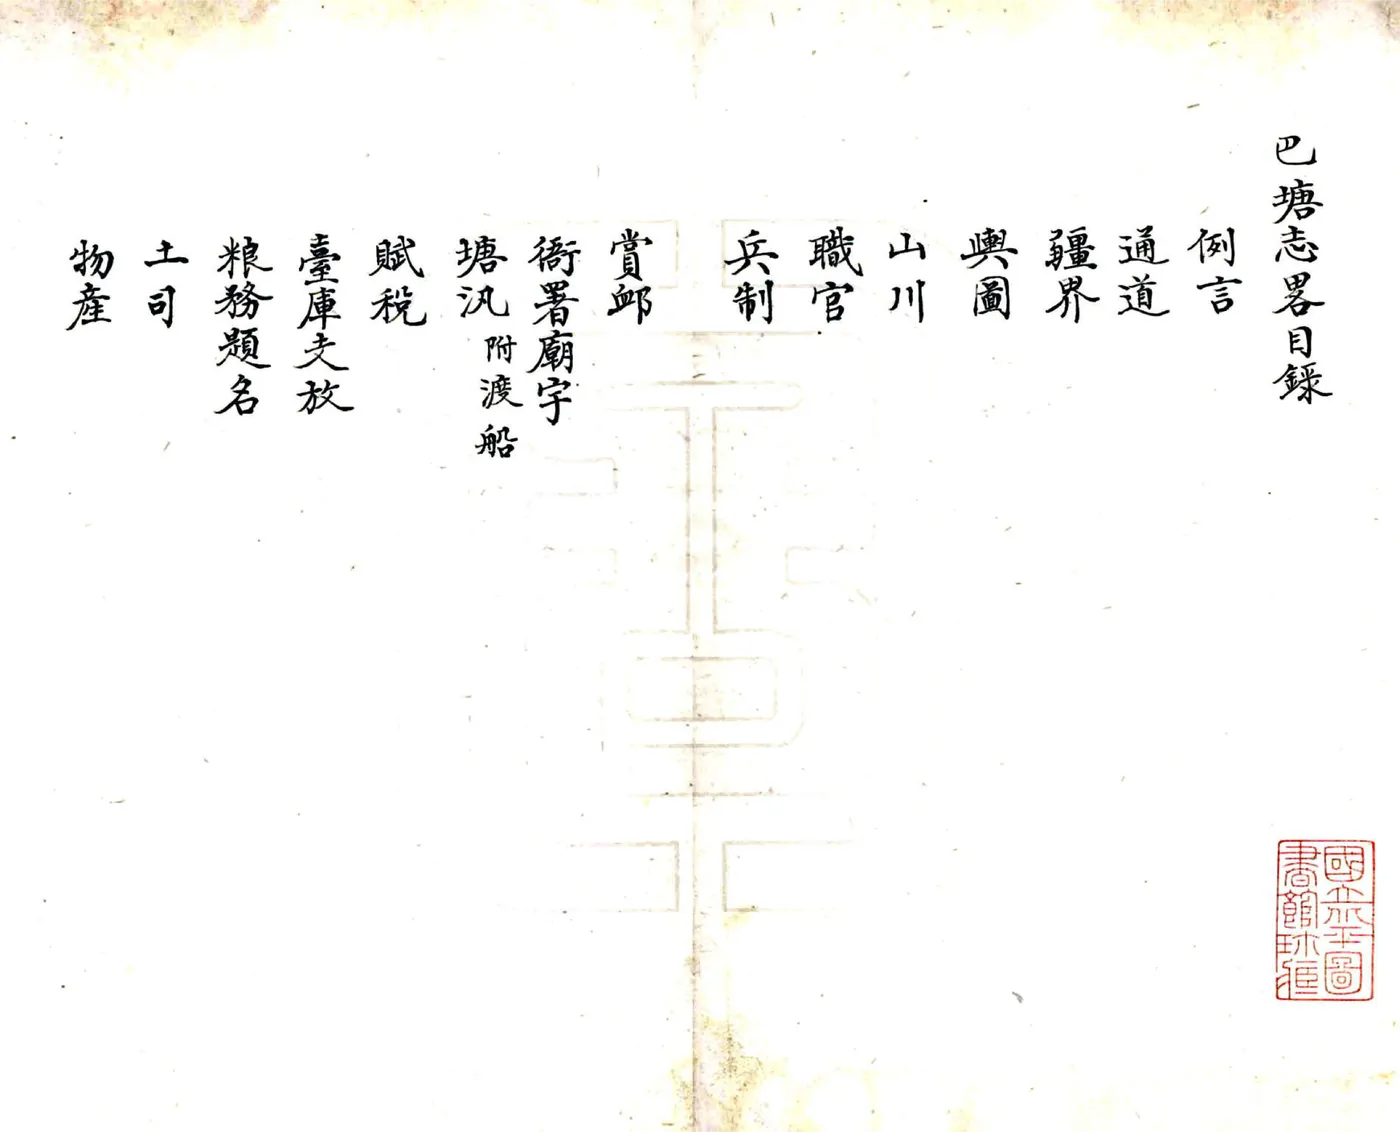 巴塘志畧目錄
例言
通道
疆界
輿圖
山川
職官
兵制
賞卹
衙署廟宇
塘汛附渡船
賦稅
臺庫支放
粮務題名
土司
物產
國立北平圖
書館珍藏